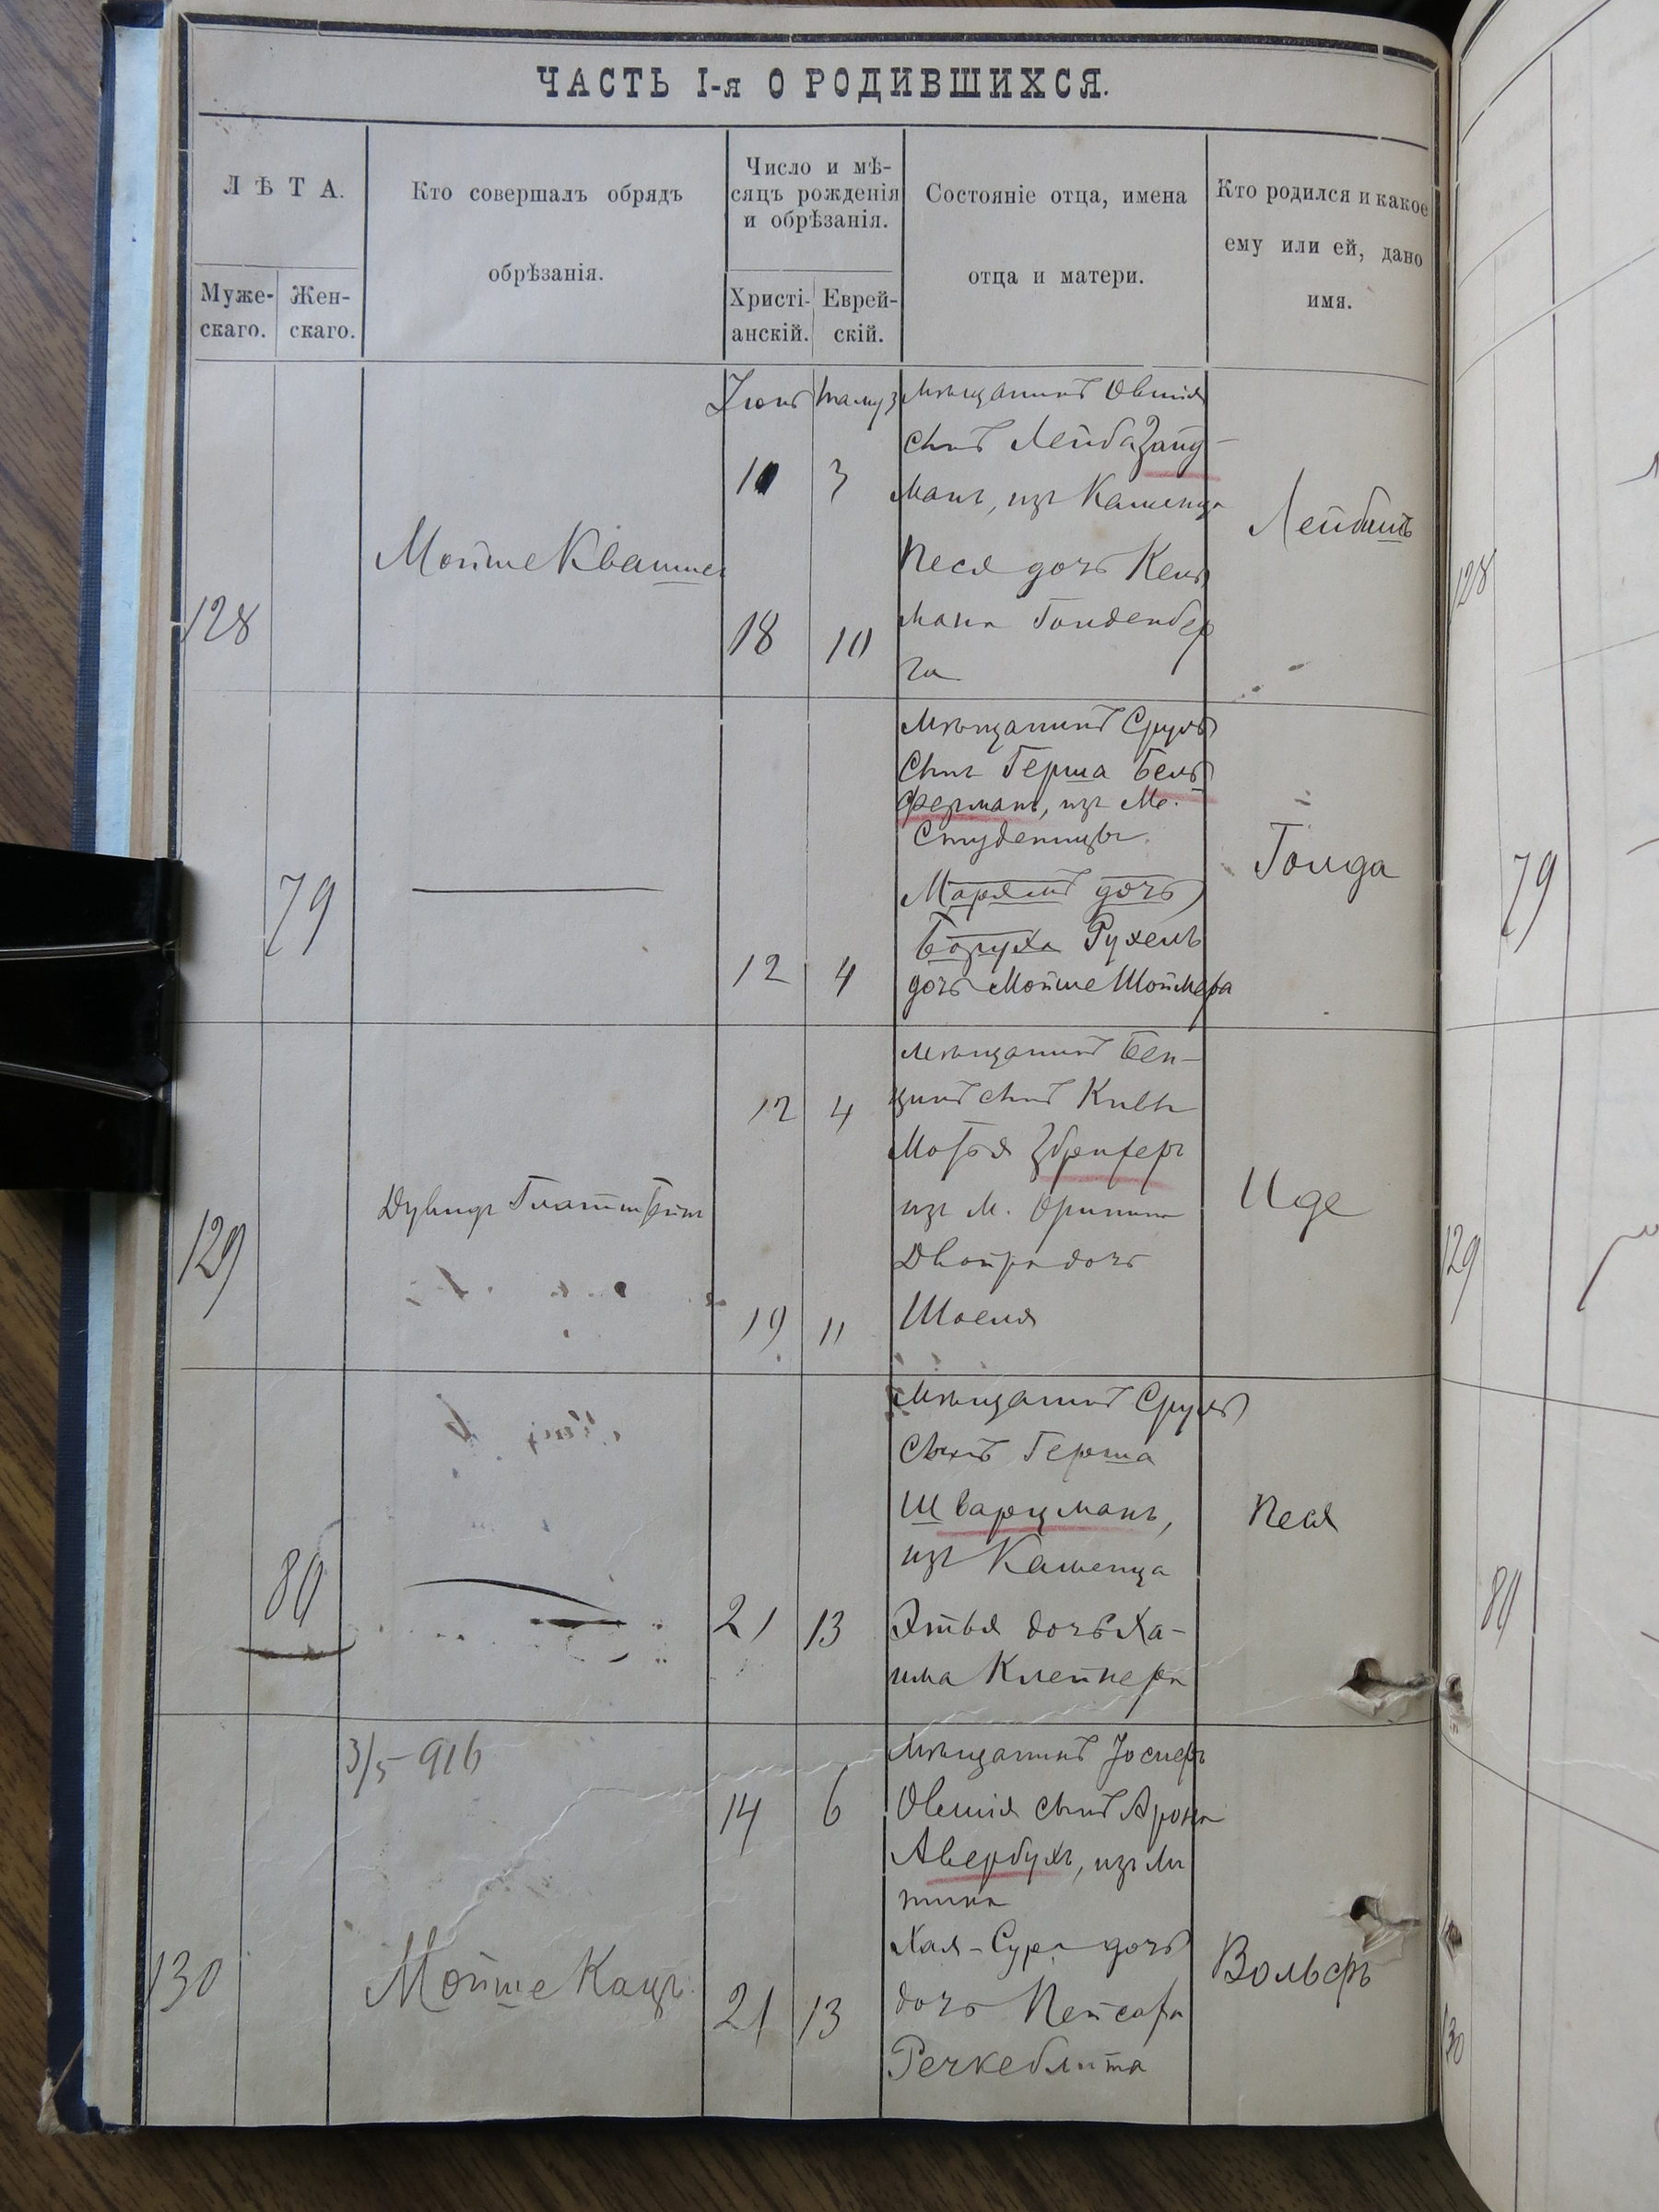 ЧАСТЬ I-я О РОДИВШИХСЯ.
ЛѢТА.
Муже-
скаго.
Жен-
скаго.
Кто совершалъ обрядъ
обрѣзанія.
Число и мѣ-
сяцъ рожденія
и обрѣзанія.
Христі-
анскій.
Еврей-
скій.
Состояніе отца, имена
отца и матери.
Кто родился и какое
ему или ей, дано
имя.
128
Мойше
10
18
Тамуз
3
10
мѣщанинъ Овшія
сынъ Лейба Зайд-
манъ, изъ Каменца
Песя дочь Кель
мана Гольденбер
га
Лейбишъ
128
79
12
4
мѣщанинъ Сруль
сынъ Герша Бель
ферманъ, изъ м.
Студеницы.
Марьямъ дочь
Боруха Рухель
дочь Мойше Шоймера
Голда
79
129
12
19
4
11
мѣщанинъ Бен-
ционъ сынъ Кивы
из м. Оринина
Двойра дочь
Шоеля
Иде
129
80
21
13
мѣщанинъ Сруль
сынъ Герша
Шварцманъ,
изъ Каменца
Этья дочь Ха-
има Клейнера
Песя
80
3/5-916
130
Мойше Кацъ
14
21
6
13
мѣщанинъ Іосифъ
Овшія сынъ Арона
Авербухъ, изъ Ля
Хая-Сура дочь
дочь Пейсаха
Вольфъ
130